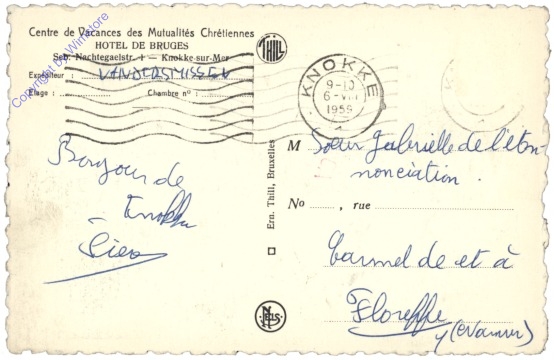 Centre de Vacances des Mutualités Chrétiennes
HOTEL DE BRUGES
Seb. Nachtegaelstr. 1 — Knokke-sur-Mer
Expéditeur : VANDERSMISSEN
Etage : Chambre n° :
Copyright by Winstore
THILL
KNOKKE
9-10
6-VIII
1959
Bonjour de
Knokke
Ern. Thill, Bruxelles
NELS
M Soeur Gabrielle de l'ετον
nonciation.
No , rue
Carmel de et à
Floreffe
(Namur)